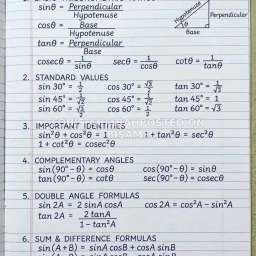 sinθ = Perpendicular / Hypotenuse
Hypotenuse
Perpendicular
θ
Base
cosθ = Base / Hypotenuse
tanθ = Perpendicular / Base
cosecθ = 1/sinθ secθ = 1/cosθ cotθ = 1/tanθ
2. STANDARD VALUES
sin 30° = 1/2 cos 30° = √3/2 tan 30° = 1/√3
sin 45° = 1/√2 tan 45° = 1
sin 60° = √3/2 cos 60° = 1/2 tan 60° = √3
3. IMPORTANT IDENTITIES
sin²θ + cos²θ = 1 1 + tan²θ = sec²θ
1 + cot²θ = cosec²θ
4. COMPLEMENTARY ANGLES
sin(90° − θ) = cosθ cos(90° − θ) = sinθ
tan(90° − θ) = cotθ sec(90° − θ) = cosecθ
5. DOUBLE ANGLE FORMULAS
sin 2A = 2 sinA cosA cos 2A = cos²A − sin²A
tan 2A = 2 tanA / 1 − tan²A
6. SUM & DIFFERENCE FORMULAS
sin(A + B) = sinA cosB + cosA sinB